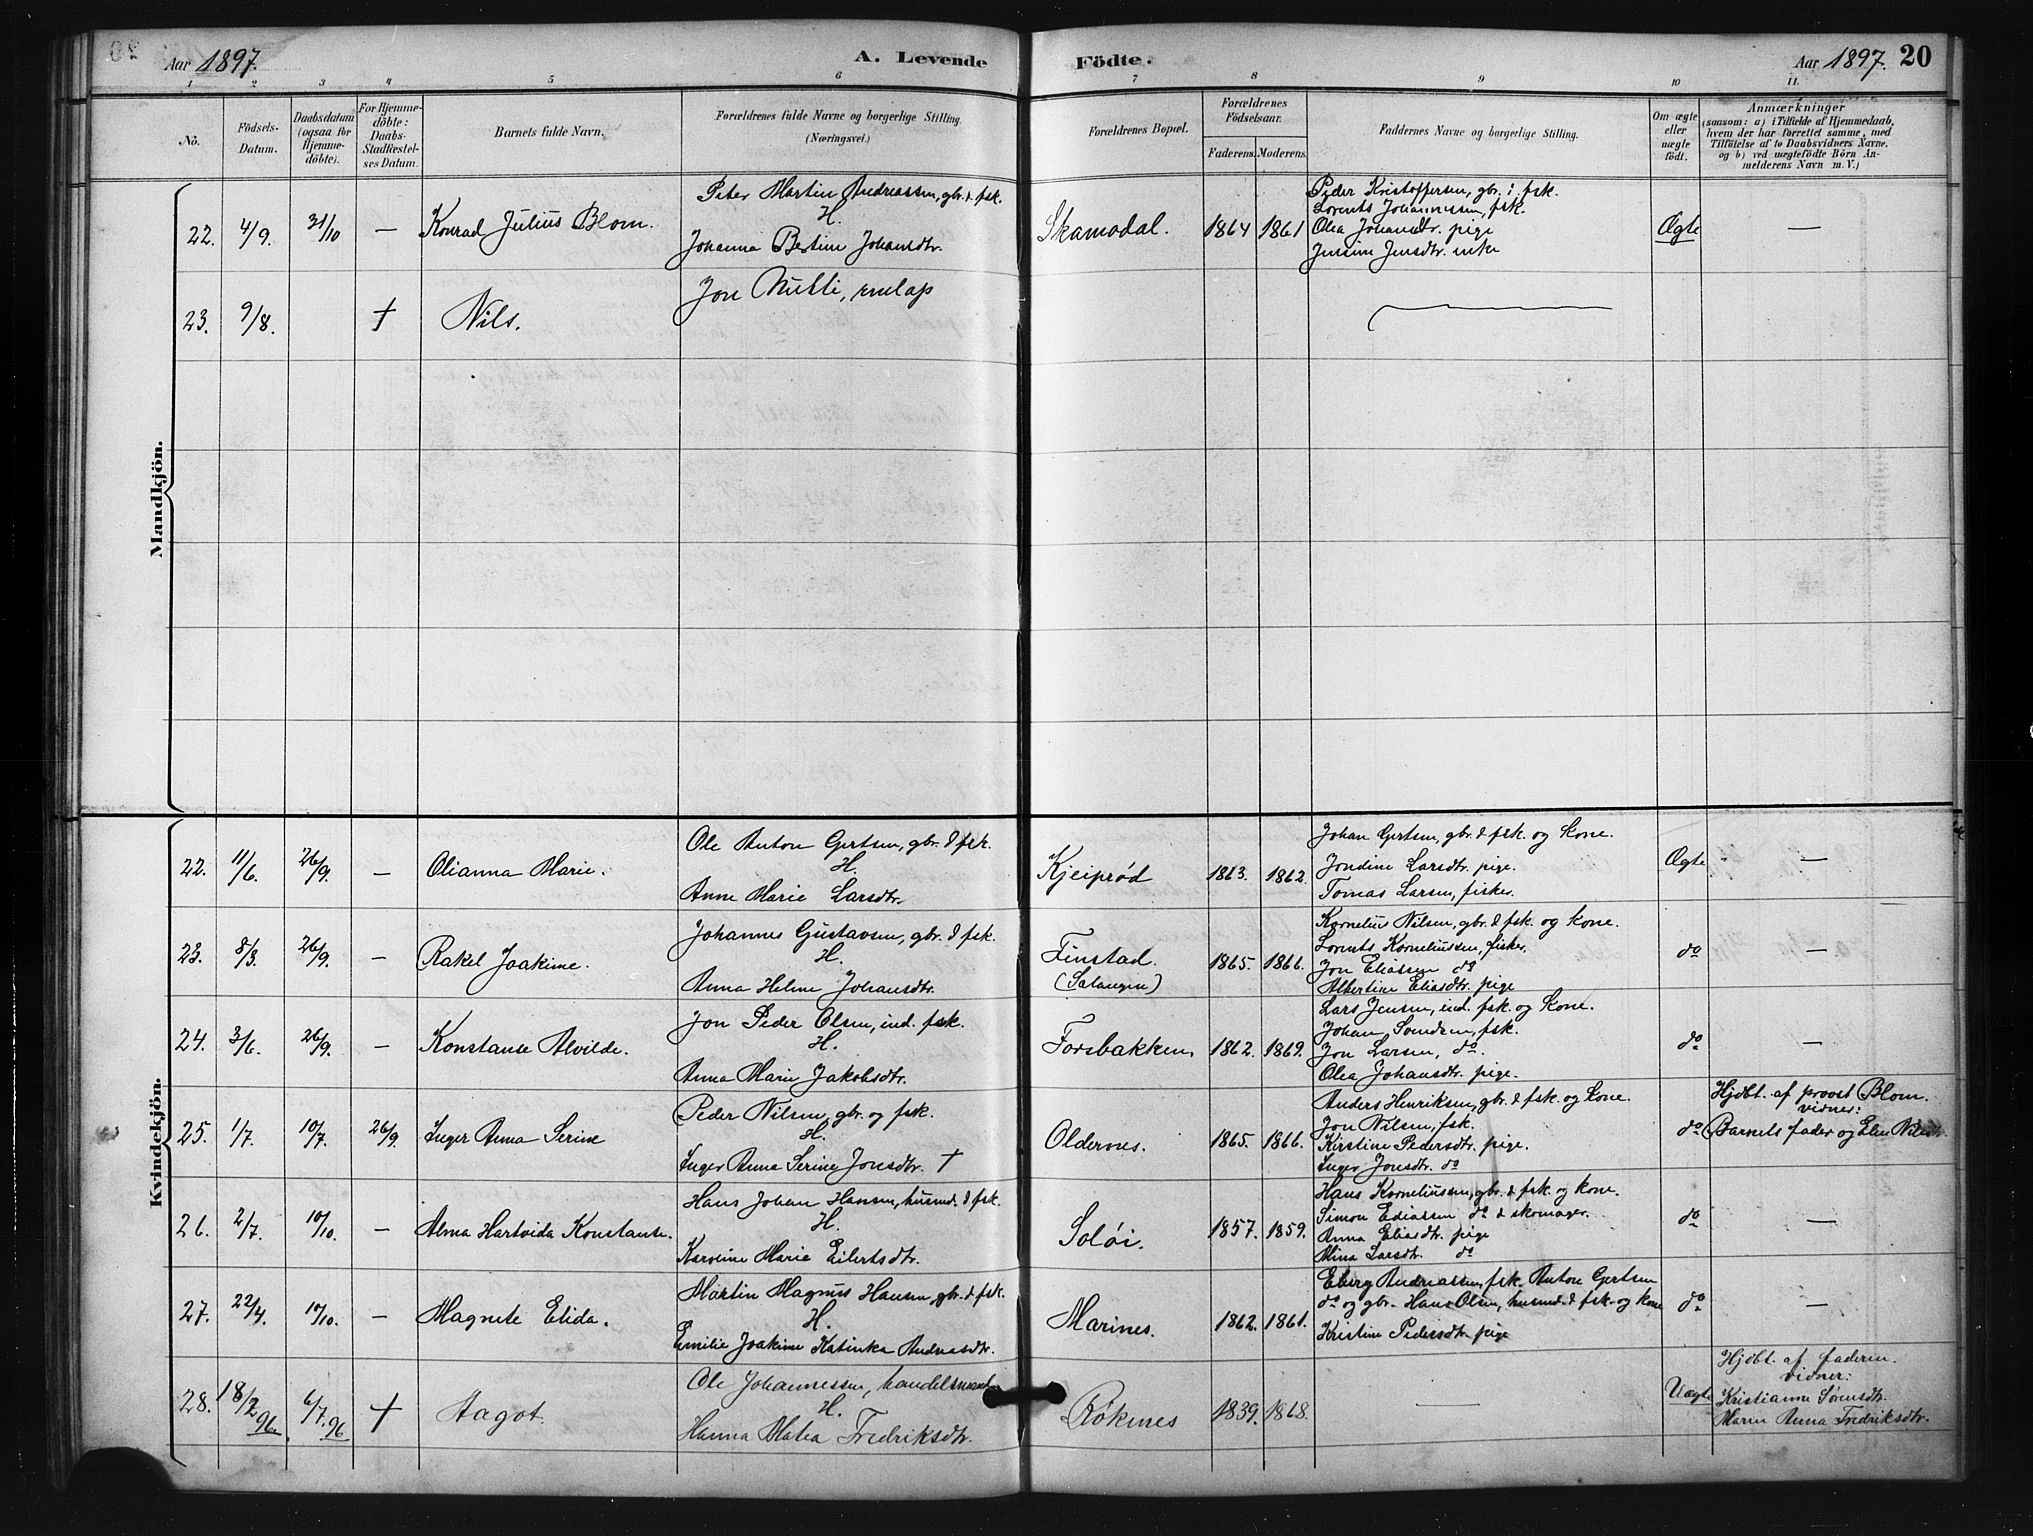 Aar 1897. A. Levende Fødte. Aar 1897. 20
1 2 3 4 5 6 7 8 9 10 11.
No.
Födsels-
Datum.
Daabsdatum
(ogsaa for
Hjemme-
döbte).
For Hjemme-
döbte:
Daabs-
Stadfæstel-
ses Datum.
Barnets fulde Navn.
Forældrenes fulde Navne og borgerlige Stilling.
(Næringsvei.)
Forældrenes Bopæl.
Forældrenes
Födselsaar.
Faderens. Moderens.
Faddernes Navne og borgerlige Stilling.
Om ægte
eller
uægte
født.
Anmærkninger
(saasom: a) i Tilfælde af Hjemmedaab,
hvem der har forrettet samme, med
Tilføielse af to Daabsvidners Navne,
og b) ved uægtefødte Börn An-
melderens Navn m. V.)
Mandkjön.
22. 4/9. 31/10 — Konrad Julius Blom.
Peter Martin Andreassen, gbr. & fsk.
H.
Johanna Bertine Johansdtr.
Skamodal. 1864 1861
Peder Kristoffersen, gbr. & fsk.
Lorents Johannessen, fsk.
Olea Johansdtr. pige
Jensine Jensdtr. enke
Ægte —
23. 9/8. † Nils.
Jon
Kvindekjön.
22. 11/6. 26/9. — Olianna Marie.
Ole Anton Gertsen, gbr. & fsk.
H.
Anne Marie Larsdtr.
Kjeiprød 1863. 1862.
Johan Gertsen, gbr. & fsk. og kone.
Jondine Larsdtr. pige.
Tomas Larsen, fisker.
Ægte —
23. 8/3. 26/9. — Rakel Joakime.
Johannes Gustavsen, gbr. & fsk.
H.
Anna Heline Johansdtr.
Finstad.
(Salangen)
1865. 1866.
Kornelius Nilsen, gbr. & fsk. og kone.
Lorents Korneliussen, fisker.
Jon Eliassen do
Albertine Eliasdtr. pige
do —
24. 3/6. 26/9. — Konstanse Alvilde.
Jon Peder Olsen, ind. fsk.
H.
Anna Marie Jakobsdtr.
Forsbakken 1862. 1869.
Lars Jensen, ind. fsk. og kone.
Johan Svendsen, fsk.
Jon Larsen, do.
Olea Johansdtr. pige.
do —
25. 1/7. 10/7. 26/9 Inger Anna Serine
Peder Nilsen, gbr. og fsk.
H.
Inger Anna Serine Jonsdtr. †
Oldernes. 1865. 1866.
Anders Henriksen, gbr. & fsk. og kone.
Jon Nilsen, fsk.
Kirstine Pedersdtr. pige.
Inger Jonsdtr. do
do
Hjdbt. af provst Blom.
vidner:
Barnets fader og Elen Nilsdtr.
26. 2/7. 10/10. — Alma Hartvida Konstanse.
Hans Johan Hansen, husmd. & fsk.
H.
Karoline Marie Eilertsdtr.
Soløi. 1857. 1859.
Hans Korneliussen, gbr. & fsk. og kone.
Simon Ediassen do & skomager.
Anna Eliasdtr. pige
Mina Larsdtr. do
do —
27. 22/4. 10/10. — Magnete Elida.
Martin Magnus Hansen, gbr. & fsk.
H.
Emilie Joakime Katinka Andreasdtr.
Marines. 1862. 1861.
Edberg Andreassen, fsk. Anton Gertsen
do og gbr. Hans Olsen, husmd. & fsk. og kone
Kristine Pedersdtr. pige
do —
28. 18/2 96. 6/7. 96 † Aagot.
Ole Johannessen, handelsmand
H.
Hanna Matea Fredriksdtr.
Røkenes 1839. 1868. —
Uægte
Hjdbt. af faderen.
vidner:
Kristianne Sørensdtr.
Maren Anna Fredriksdtr.